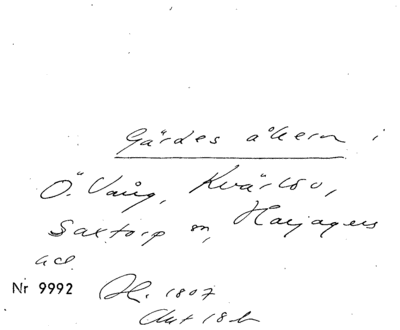 Gärdes åkern i
Ö. Vång, Kvärlöv,
Saxtorp sn, Harjagers
hd.
Nr 9992 H. 1807
Akt 18b